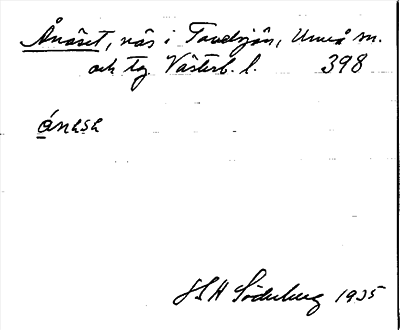 Ånäset, näs i Tavelsjön, Umeå sn.
och tg. Västerb. l. 398
ånesε
JLH Söderberg 1935